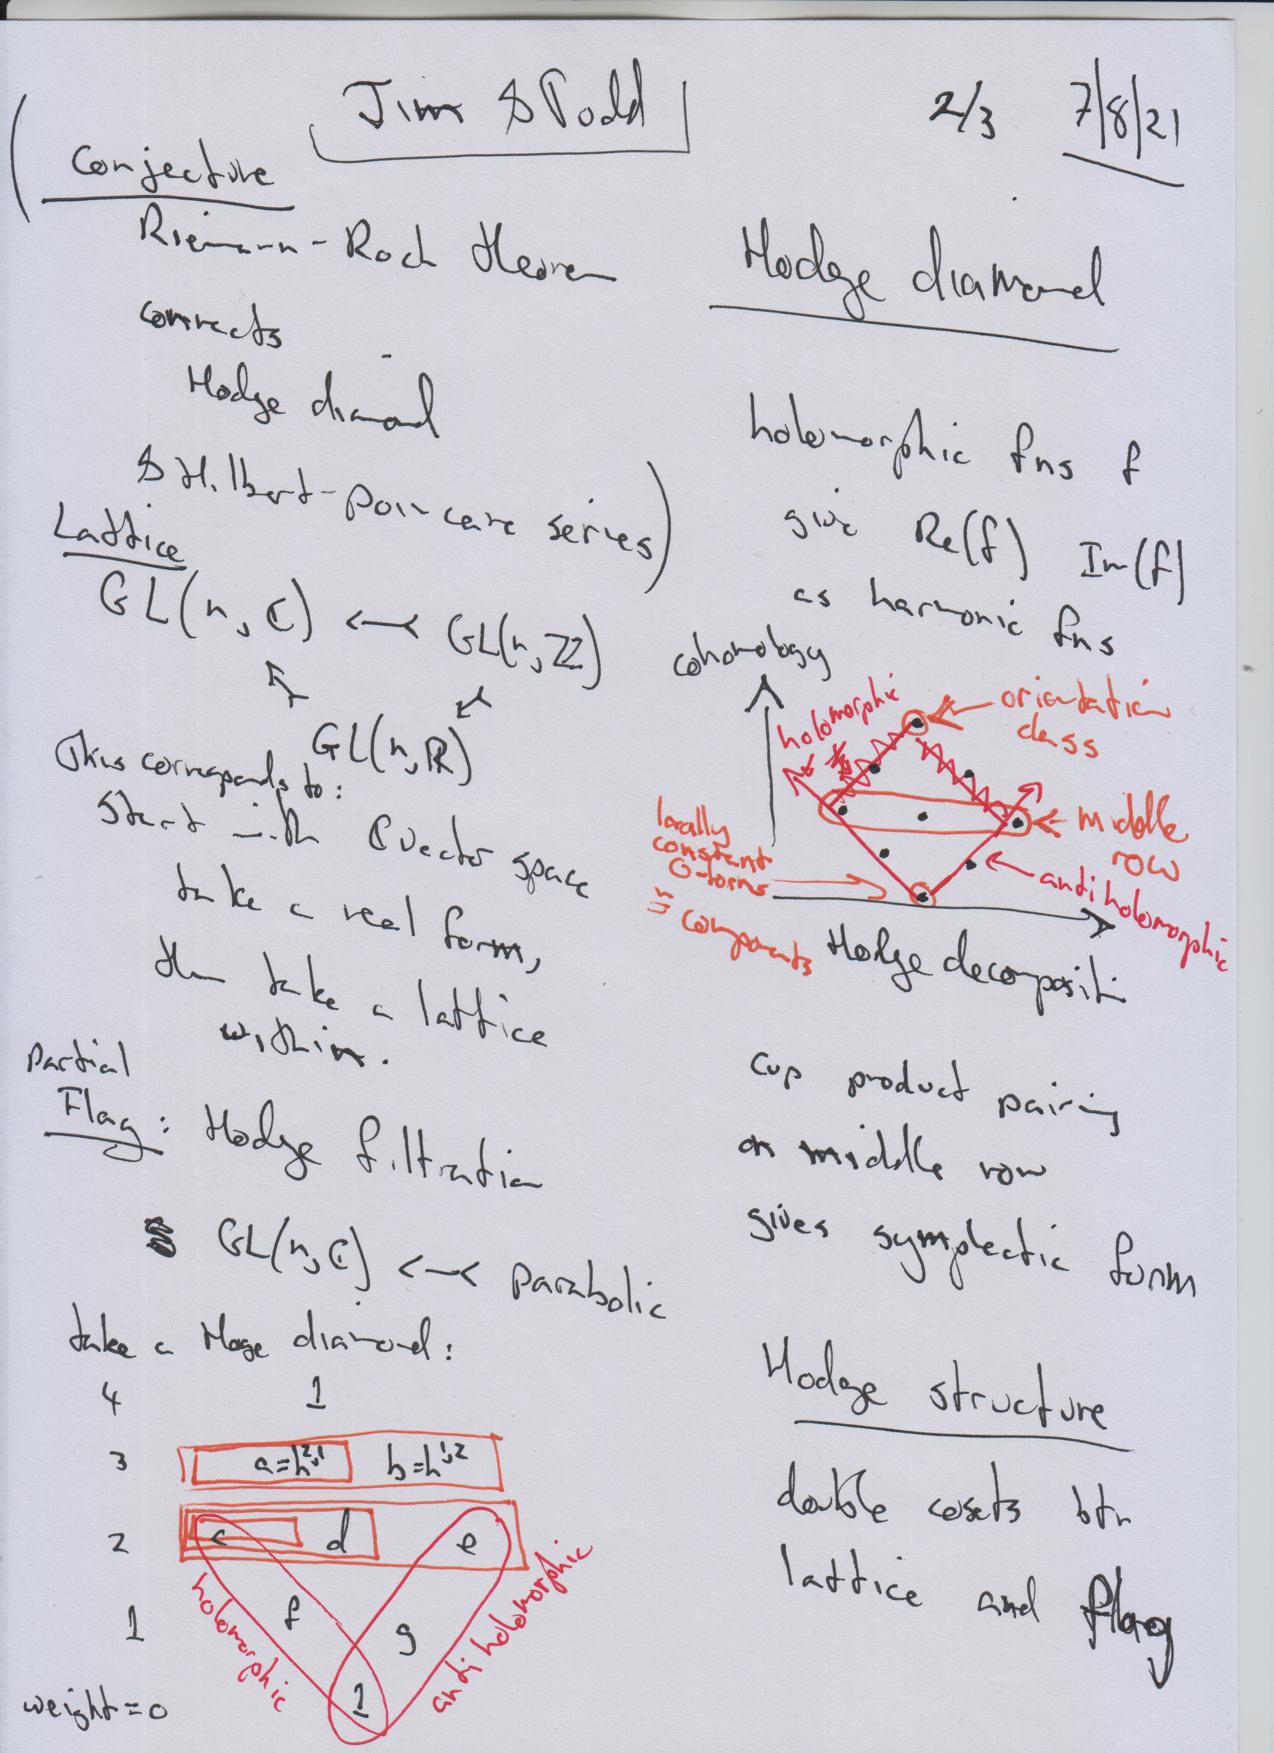 Jim & Todd
2/3 7/8/21
(Conjecture
Riemann-Roch theorem
connects
Hodge diamond
& Hilbert-poincare series)
Lattice
GL(n, ℂ) ← GL(n, ℤ)
GL(n, ℝ)
This corresponds to:
start with ℂ vector space
take a real form,
then take a lattice
within.
Partial
Flag: Hodge filtration
GL(n, ℂ) ← parabolic
take a Hoge diamond:
4 1
3 a=h²,¹ b=h¹,²
2 c d e
1 f g
weight=0 1
holomorphic
antiholomorphic
Hodge diamond
holomorphic fns f
give Re(f) Im(f)
as harmonic fns
cohomology
holomorphic
orientation
class
middle
row
locally
constant
0-forms
≅ components
antiholomorphic
Hodge decompositi
cup product pairing
on middle row
gives symplectic form
Hodge structure
double cosets btn
lattice and flag